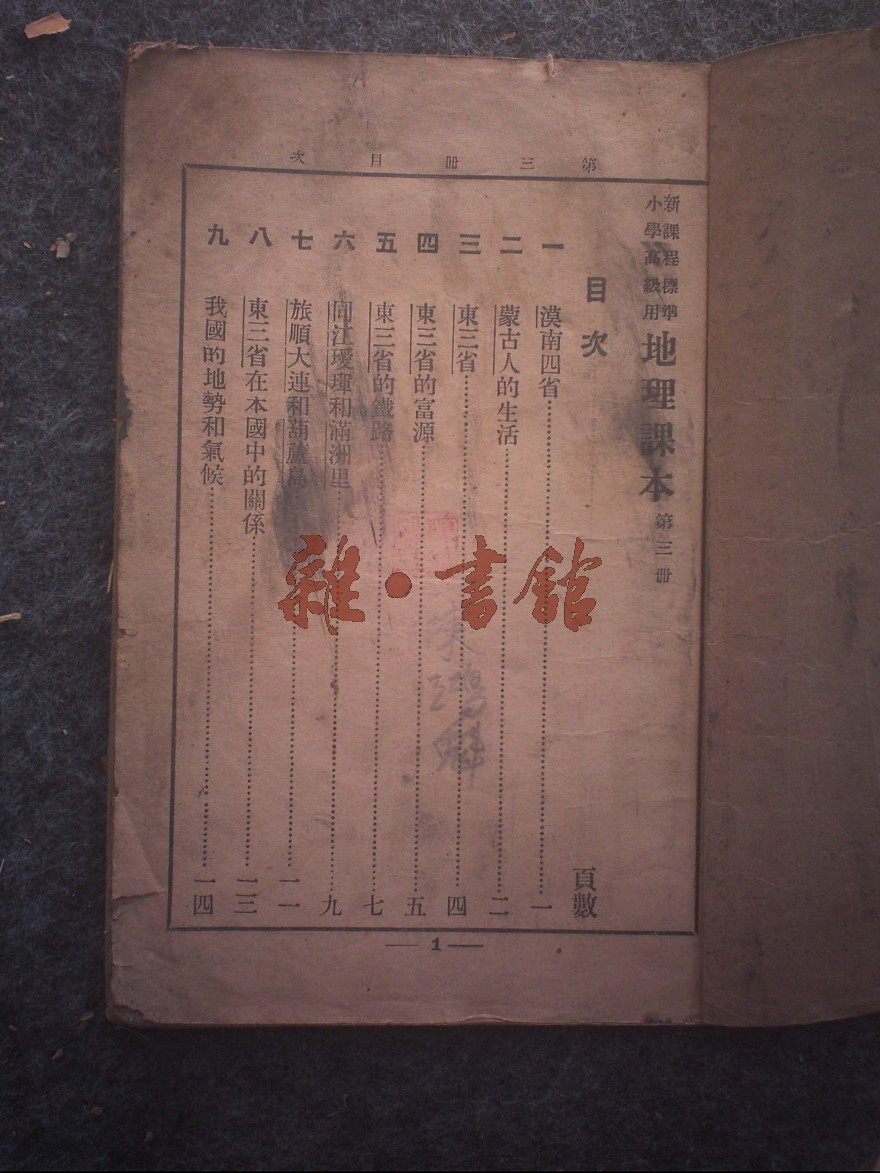 第三册目次
新課程標準
小學高級用
地理課本 第三册
目次
頁數
一 漠南四省 一
二 蒙古人的生活 二
三 東三省 四
四 東三省的富源 五
五 東三省的鐵路 七
六 同江璦琿和滿洲里 九
七 旅順大連和葫蘆島 一一
八 東三省在本國中的關係 一三
九 我國的地勢和氣候 一四
1
雜·書館